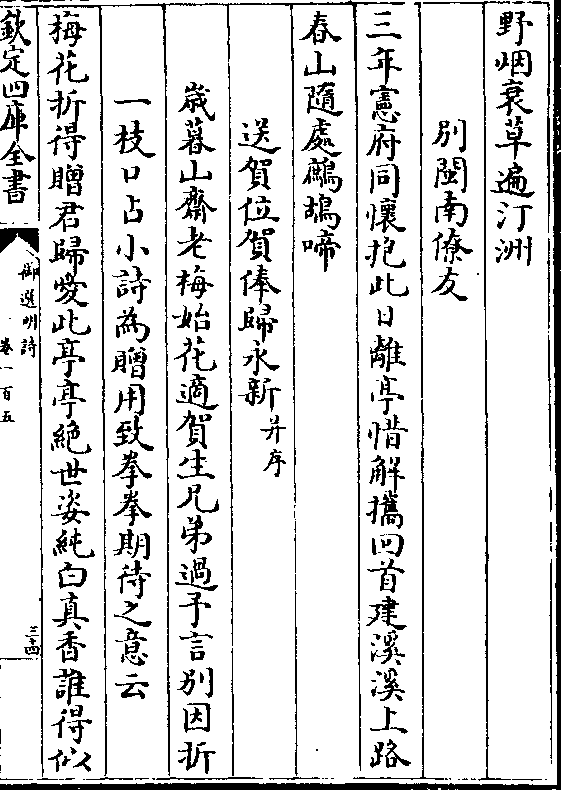 野烟衰草遍汀洲
別閩南僚友
三年憲府同懷抱此日離亭惜解攜回首建溪溪上路
春山隨處鷓鴣啼
送賀位賀俸歸永新并序
歲暮山齋老梅始花適賀生兄弟過予言別因折
一枝口占小詩為贈用致拳拳期待之意云
梅花折得贈君歸愛此亭亭絕世姿純白真香誰得似
欽定四庫全書
御選明詩
卷一百五
三十四